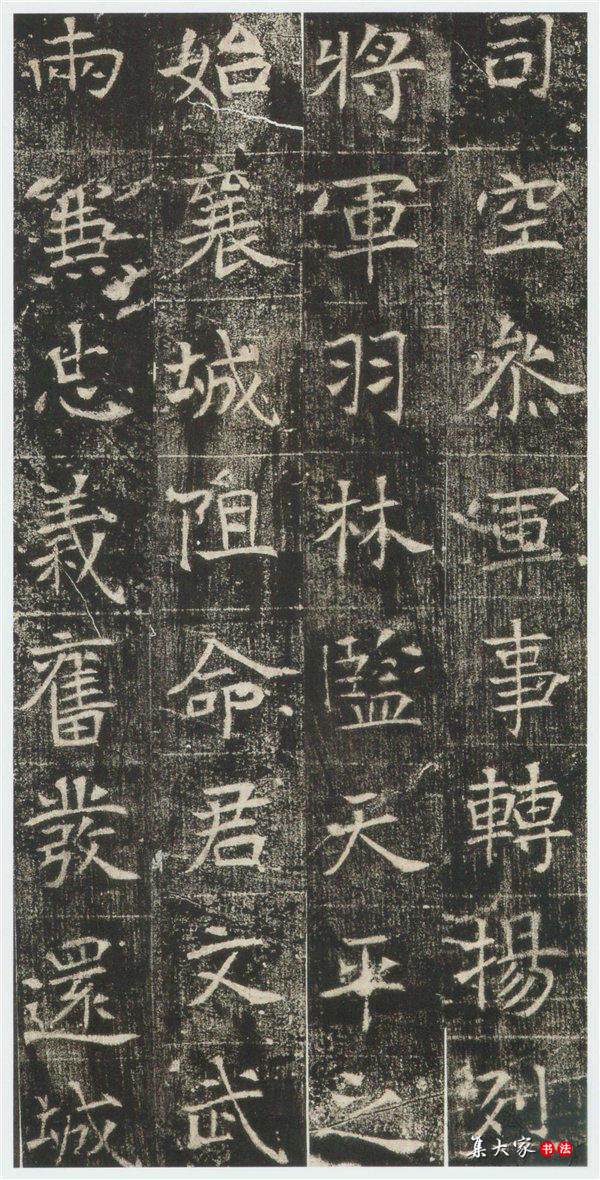 司空叅軍事轉揚列
將軍羽林監天平之
始襄城阻命君文武
兩兼忠義奮發還城
集大家书法